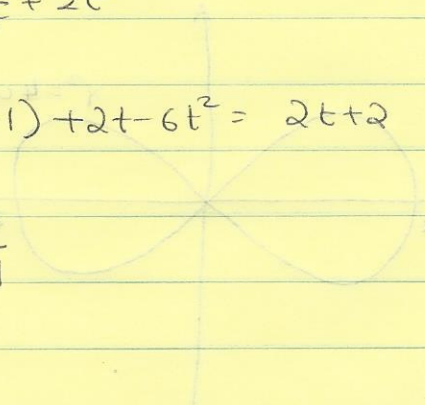 + 2t
1) +2t-6t² = 2t+2